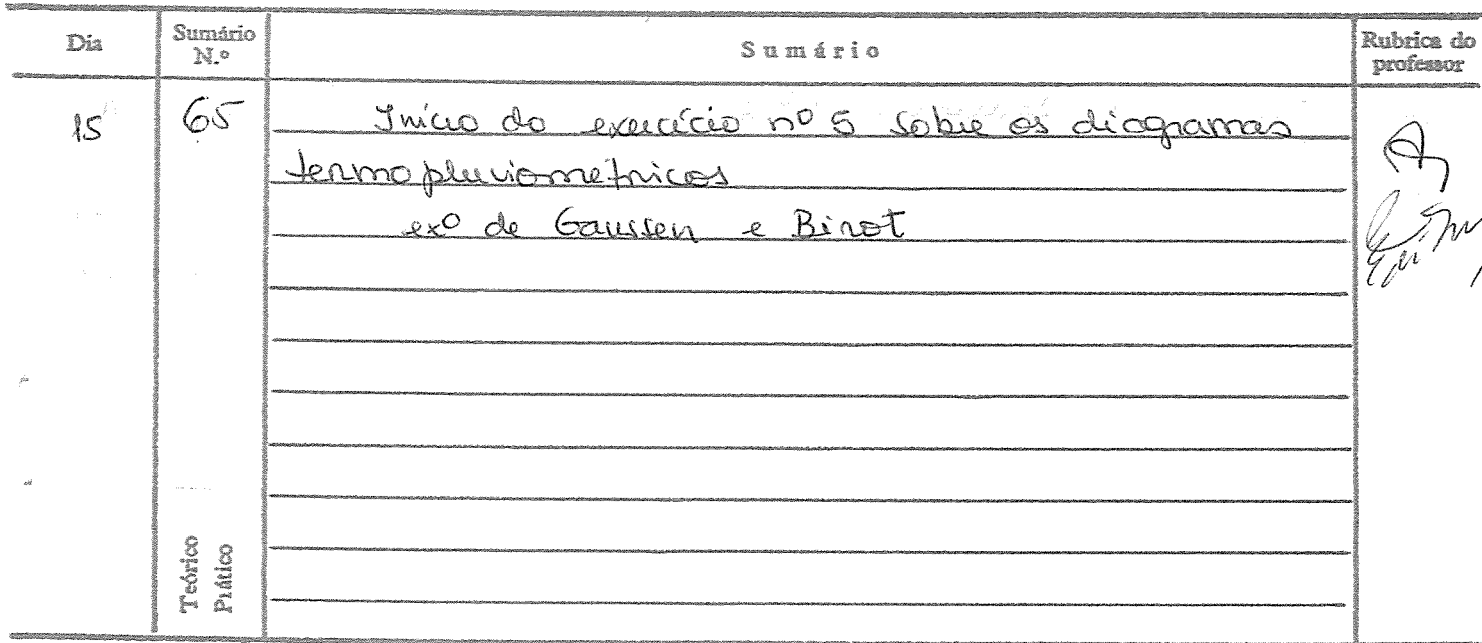 Dia Sumário N.º Sumário Rubrica do professor
15 65 Início do exercício nº 5 sobre os diagramas
termopluviométricos
exº de Gaussen e Birot
Teórico
Prático